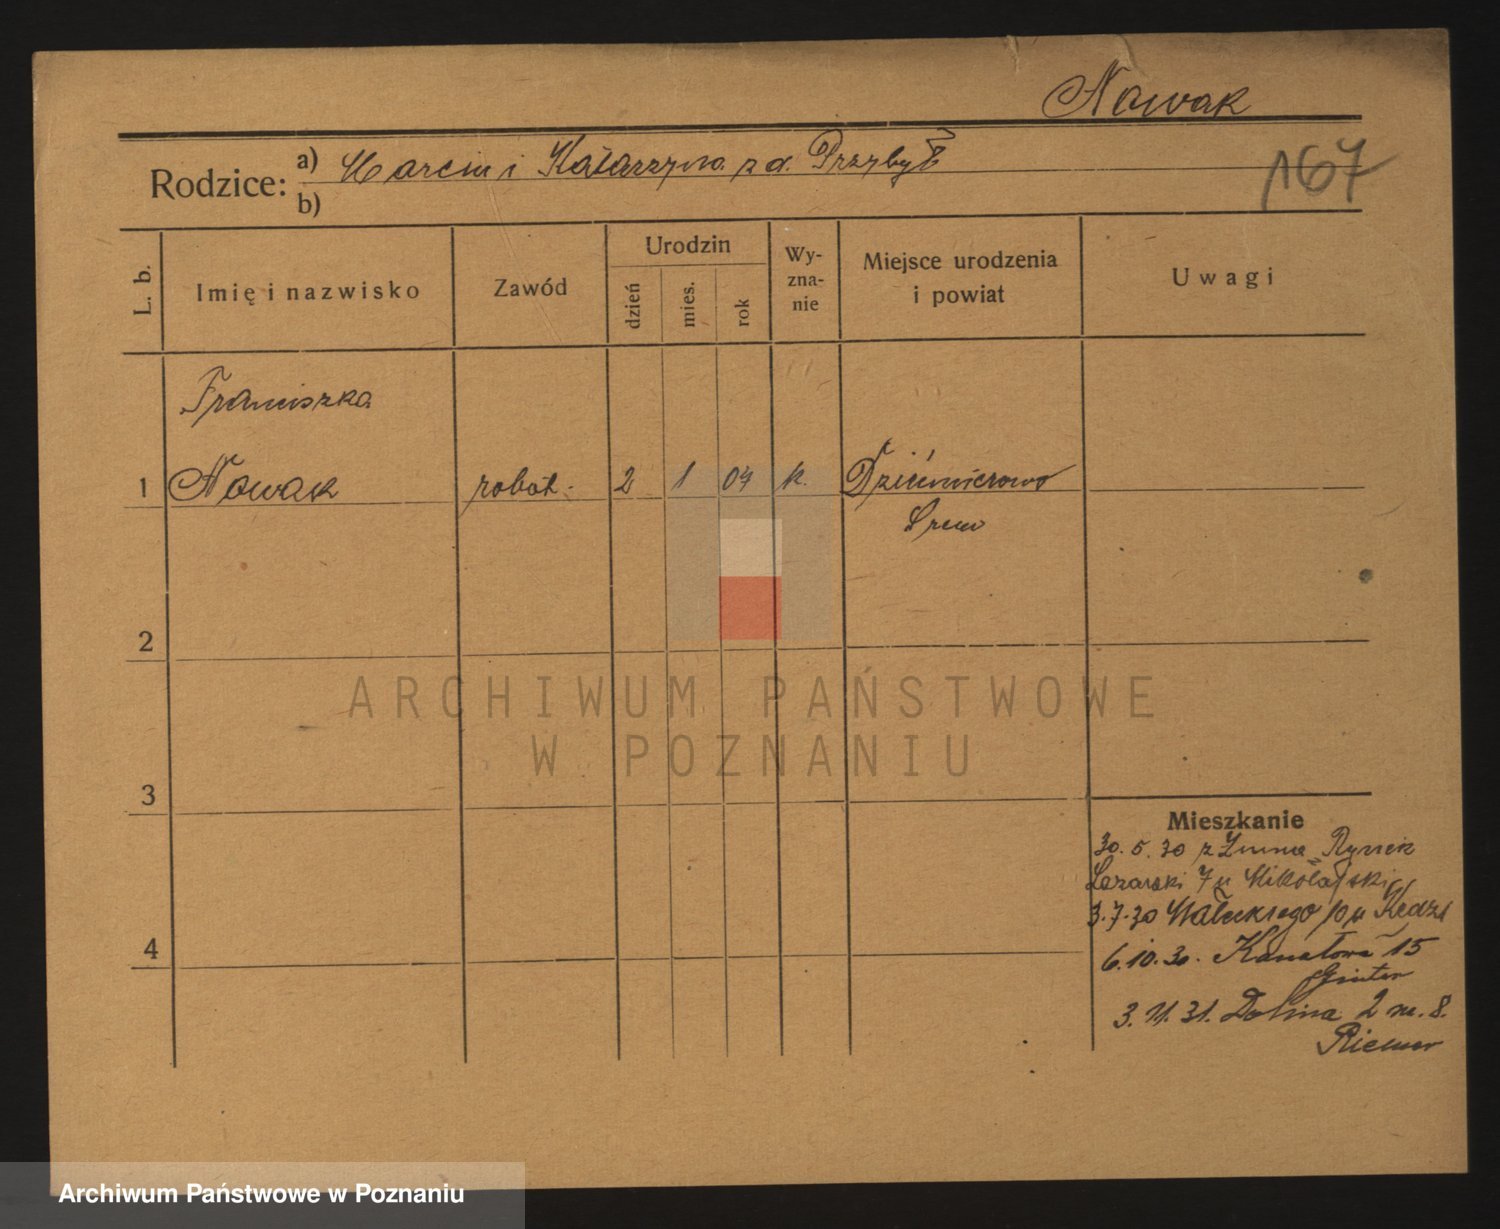 Nowak
Rodzice: a) Marcin i Katarzyna z d. Przybył
167
b)
L. b.
Imię i nazwisko
Zawód
Urodzin
dzień
mies.
rok
Wy-
zna-
nie
Miejsce urodzenia
i powiat
Uwagi
Franciszka
1 Nowak robot. 2 1 04 k. Dziećmierowo
Śrem
2
3
4
Mieszkanie
30.5.30 z Rynek
Łazarski 7 u Mikołajski
3.7.30 Małeckiego 10 u
6.10.30. Kanałowa 15
Ginter
3.11.31. Dolina 2 m. 8.
Riemer
ARCHIWUM PAŃSTWOWE
W POZNANIU
Archiwum Państwowe w Poznaniu